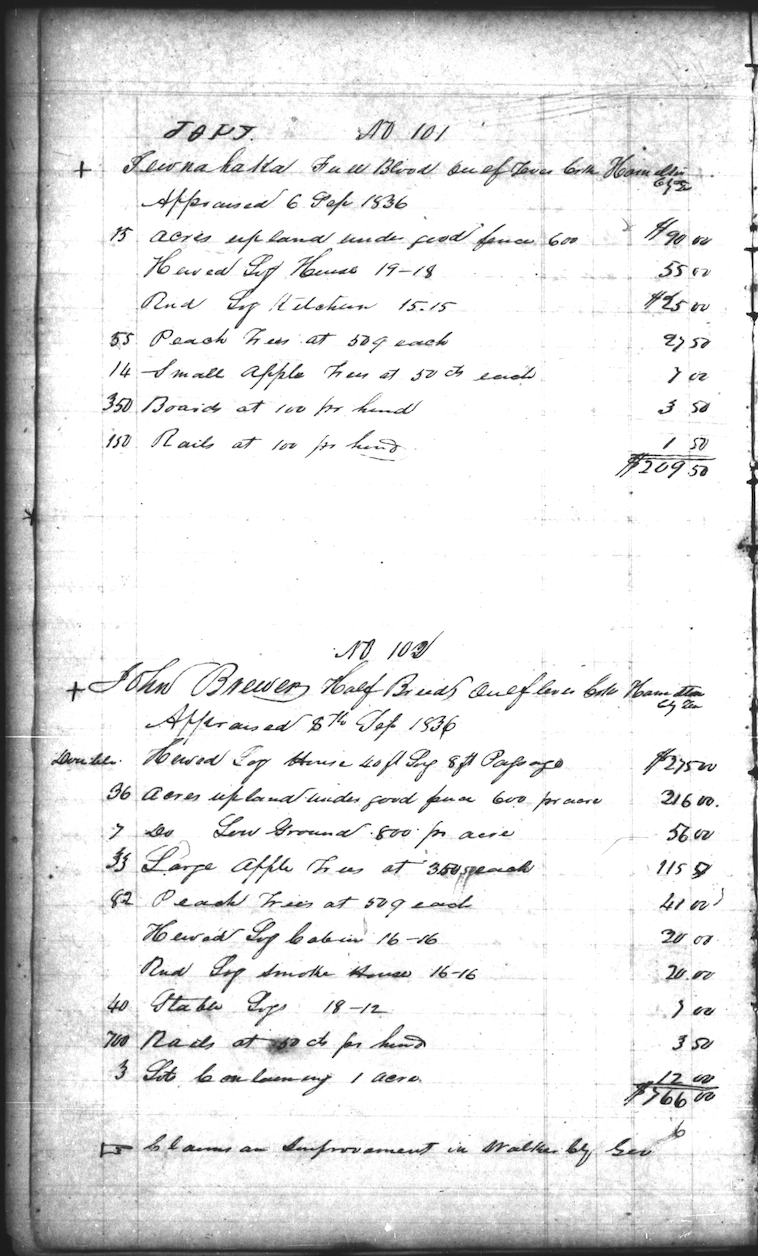 No 101
+ Full Blood Hamilton Cty Te
Appraised 6 Sep 1836
15 acres upland under good fence 600 $90 00
Hewed Log House 19-18 55 00
Rnd Log Kitchen 15.15 $25 00
55 Peach Trees at 50¢ each 27 50
14 Small Apple Trees at 50 cts each 7 00
350 Boards at 100 pr hund 3 50
150 Rails at 100 pr hund 1 50
$209 50
No 102
+ John Brewer Half Breed Hamilton Cty Ten
Appraised 8th Sep 1836
Double Hewed Log House 40 ft Lg 8 ft Passage $275 00
36 acres upland under good fence 600 pr acre 216 00.
7 Do Low Ground 800 pr acre 56 00
33 Large Apple Trees at 350 each 115 50
82 Peach Trees at 50¢ each 41 00
Hewed Log Cabin 16-16 20 00
Rnd Log Smoke House 16-16 20.00
40 Stable Logs 18-12 7 00
700 Rails at 50 cts pr hund 3 50
3 Lots Containing 1 acre 12 00
$766 00
Claims an Improvement in Walker Cty Geo